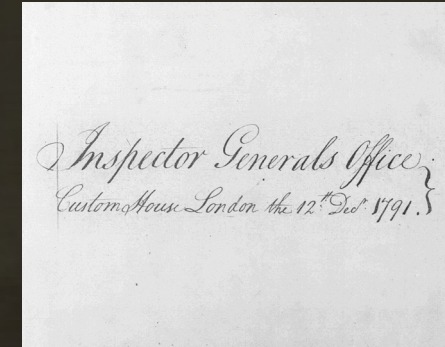 Inspector Generals Office
Custom House London the 12th Decr. 1791.